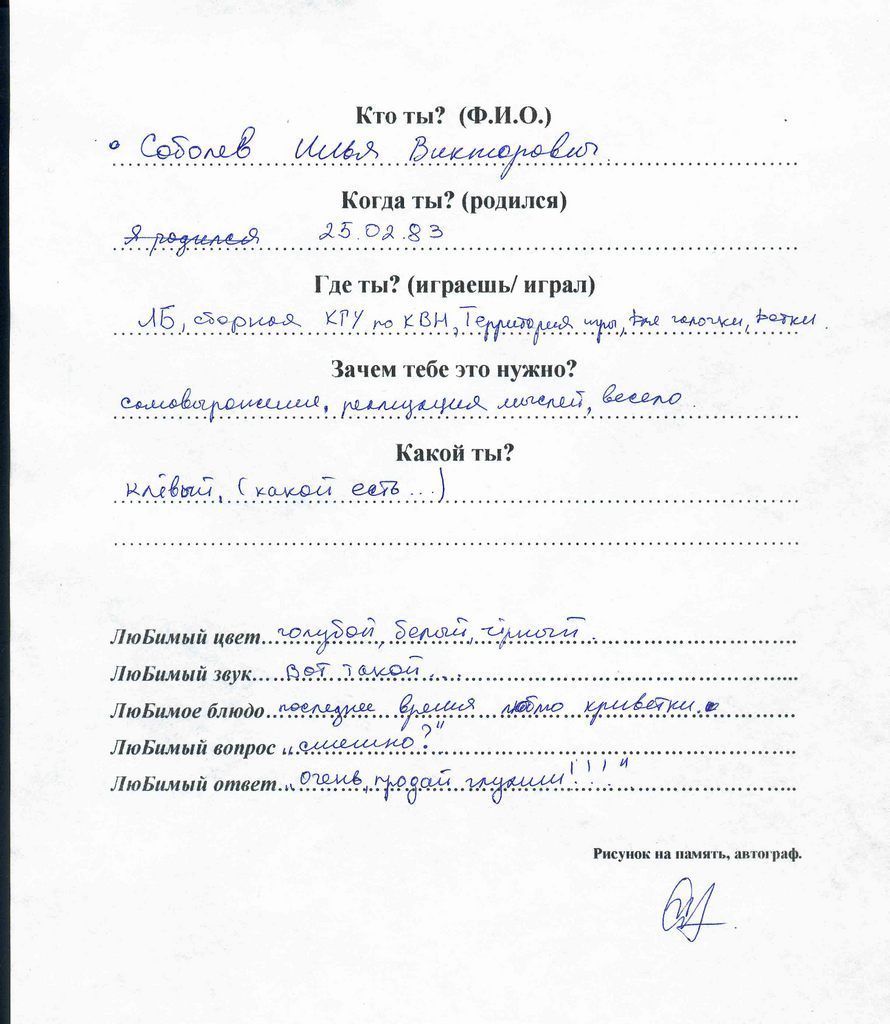 Кто ты? (Ф.И.О.)
Соболев Илья Викторович
Когда ты? (родился)
Я родился 25.02.83
Где ты? (играешь/ играл)
ЛБ, сборная КГУ по КВН, Территория игры, галочки,
Зачем тебе это нужно?
самовыражение, реализация мыслей, весело.
Какой ты?
клёвый, (какой есть...)
ЛюБимый цвет голубой, белый, чёрный.
ЛюБимый звук вот такой....
ЛюБимое блюдо последнее время люблю криветки.
ЛюБимый вопрос „смешно?"
ЛюБимый ответ „очень, продай !!!"
Рисунок на память, автограф.